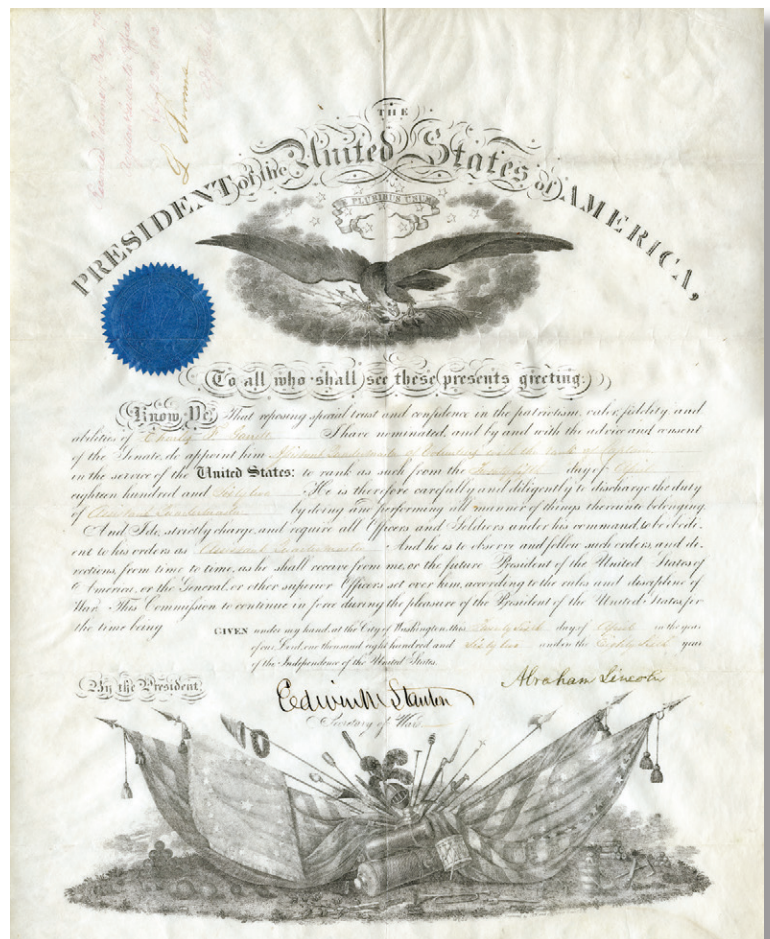 THE
PRESIDENT of the United States of AMERICA,
E PLURIBUS UNUM
To all who shall see these presents greeting:
Know Ye, That reposing special trust and confidence in the patriotism, valor, fidelity and
abilities of Charles I have nominated, and by and with the advice and consent
of the Senate, do appoint him Assistant Quartermaster of Volunteers with the rank of Captain
in the service of the United States: to rank as such from the day of April
eighteen hundred and Sixty two He is therefore carefully and diligently to discharge the duty
of Assistant Quartermaster by doing and performing all manner of things thereunto belonging.
And I do, strictly charge, and require all Officers and Soldiers under his command, to be obedi-
ent to his orders as Assistant Quartermaster And he is to observe and follow such orders, and di-
rections, from time to time, as he shall receive from me, or the future President of the United States of
America, or the General, or other superior Officers set over him, according to the rules and discipline of
War. This Commission to continue in force during the pleasure of the President of the United States, for
the time being.
GIVEN under my hand, at the City of Washington, this Twenty Sixth day of April in the year
of our Lord, one thousand eight hundred and Sixty two and in the Eighty Sixth year
of the Independence of the United States.
By the President,
Abraham Lincoln
Edwin M Stanton
Secretary of War.